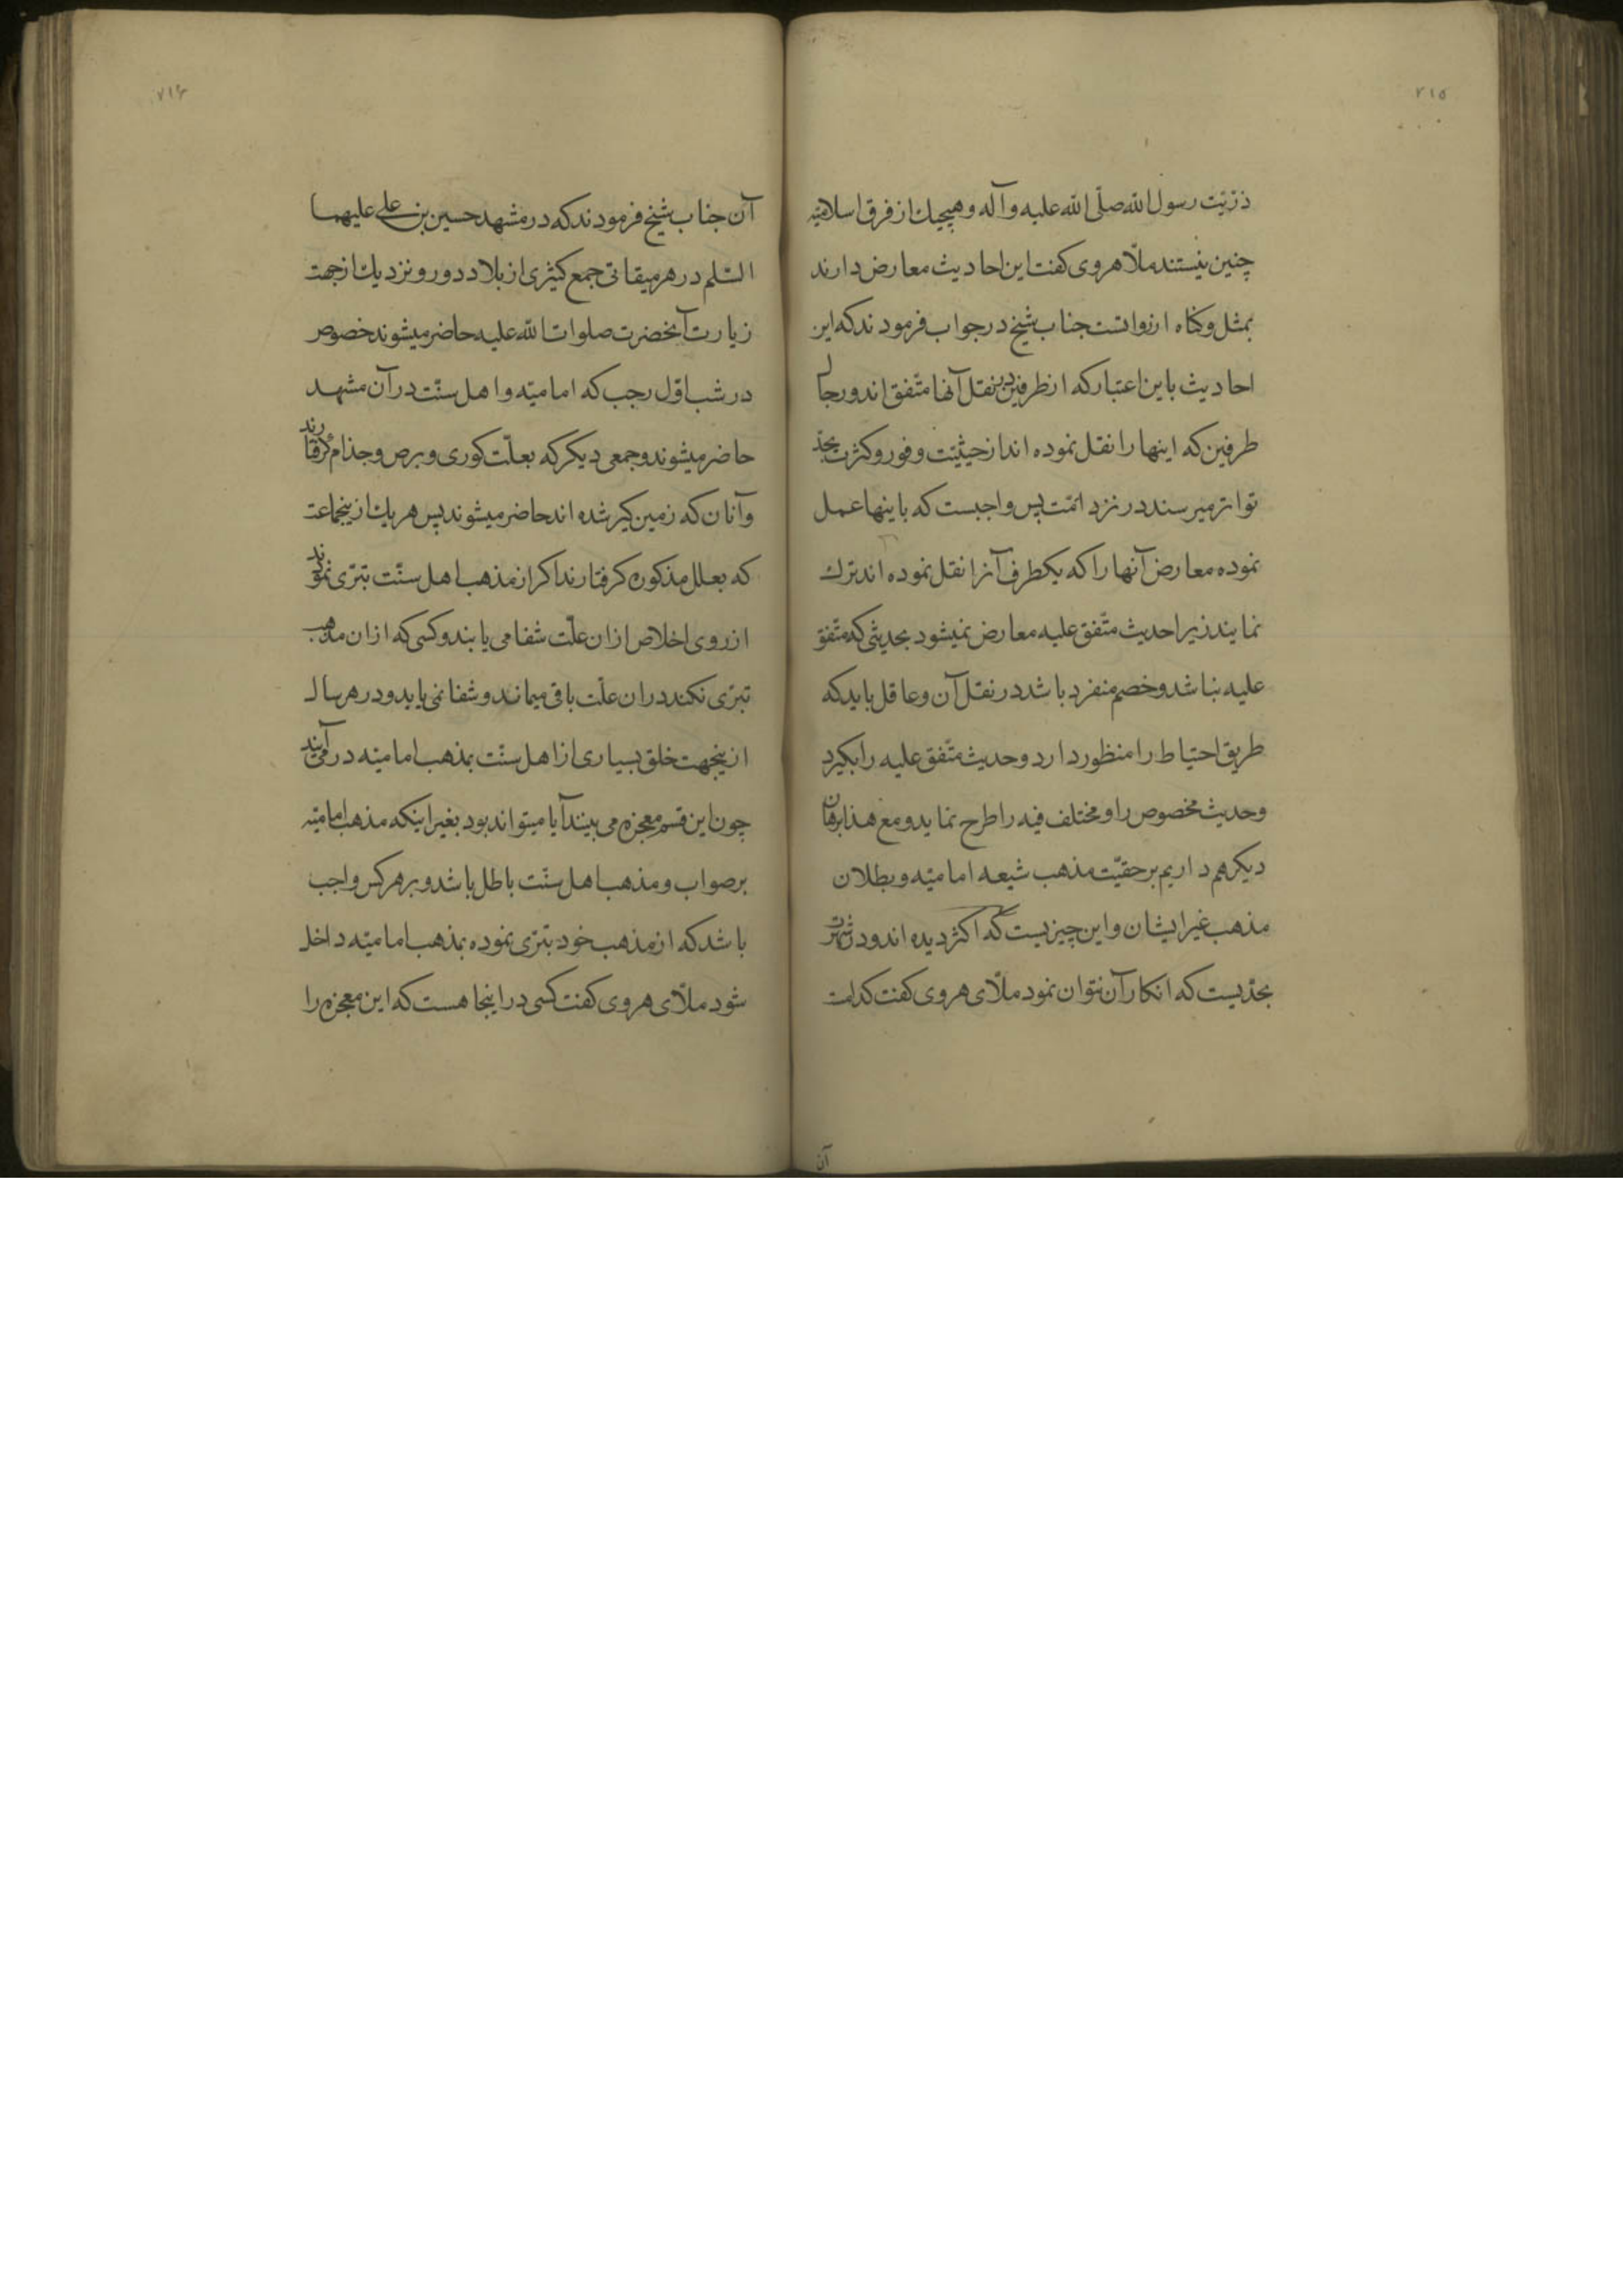 ۲۱۵
ذرّیّت رسول الله صلّی الله علیه وآله وهیچیك از فرق اسلامیّه
چنین نیستند ملّا هروی کفت این احادیث معارض دارند
بمثل وکناه از رواتست جناب شیخ در جواب فرمودند که این
احادیث باین اعتبار که از طرفین بنقل آنها متّفق اند ورجال
طرفین که اینها را نقل نموده اند از حیثیّت وفور وکثرت بحدّ
تواتر میرسند در نزد امّت پس واجبست که باینها عمل
نموده معارض آنها را که یکطرف آنرا نقل نموده اند ترك
نمایند زیرا حدیث متّفق علیه معارض نمیشود بحدیثی که متّفق
علیه نباشد وخصم منفرد باشد در نقل آن وعاقل باید که
طریق احتیاط را منظور دارد وحدیث متّفق علیه را بکیرد
وحدیث مخصوص را ومختلف فیه را طرح نماید ومع هذا برهان
دیکر هم داریم بر حقیّت مذهب شیعه امامیّه وبطلان
مذهب غیر ایشان واین چیزیست که اکثر دیده اند ودر شهرت
بحدّیست که انکار آن نتوان نمود ملّای هروی کفت کدامت
آن
۲۱۶
آن جناب شیخ فرمودند که در مشهد حسین بن علی علیهما
السّلم در هر میقاتی جمع کثیری از بلاد دور ونزدیك از جهت
زیارت آنحضرت صلوات الله علیه حاضر میشوند خصوص
در شب اوّل رجب که امامیّه واهل سنّت در آن مشهد
حاضر میشوند وجمعی دیکر که بعلّت کوری وبرص وجذام کرفتارند
وآنان که زمین کیر شده اند حاضر میشوند پس هر یك از ینجماعت
که بعلل مذکوره کرفتارند اکر از مذهب اهل سنّت تبرّی نمودند
از روی اخلاص از ان علّت شفا می یابند وکسی که از ان مذهب
تبرّی نکند در ان علّت باقی میماند وشفا نمی یابد ودر هر سال
از ینجهت خلق بسیاری از اهل سنّت بمذهب امامیّه در می آیند
چون این قسم معجزه می بینند آیا میتواند بود بغیر اینکه مذهب امامیّه
بر صواب ومذهب اهل سنّت باطل باشد وبر هر کس واجب
باشد که از مذهب خود تبرّی نموده بمذهب امامیّه داخل
شود ملّای هروی کفت کسی در اینجا هست که این معجزه را